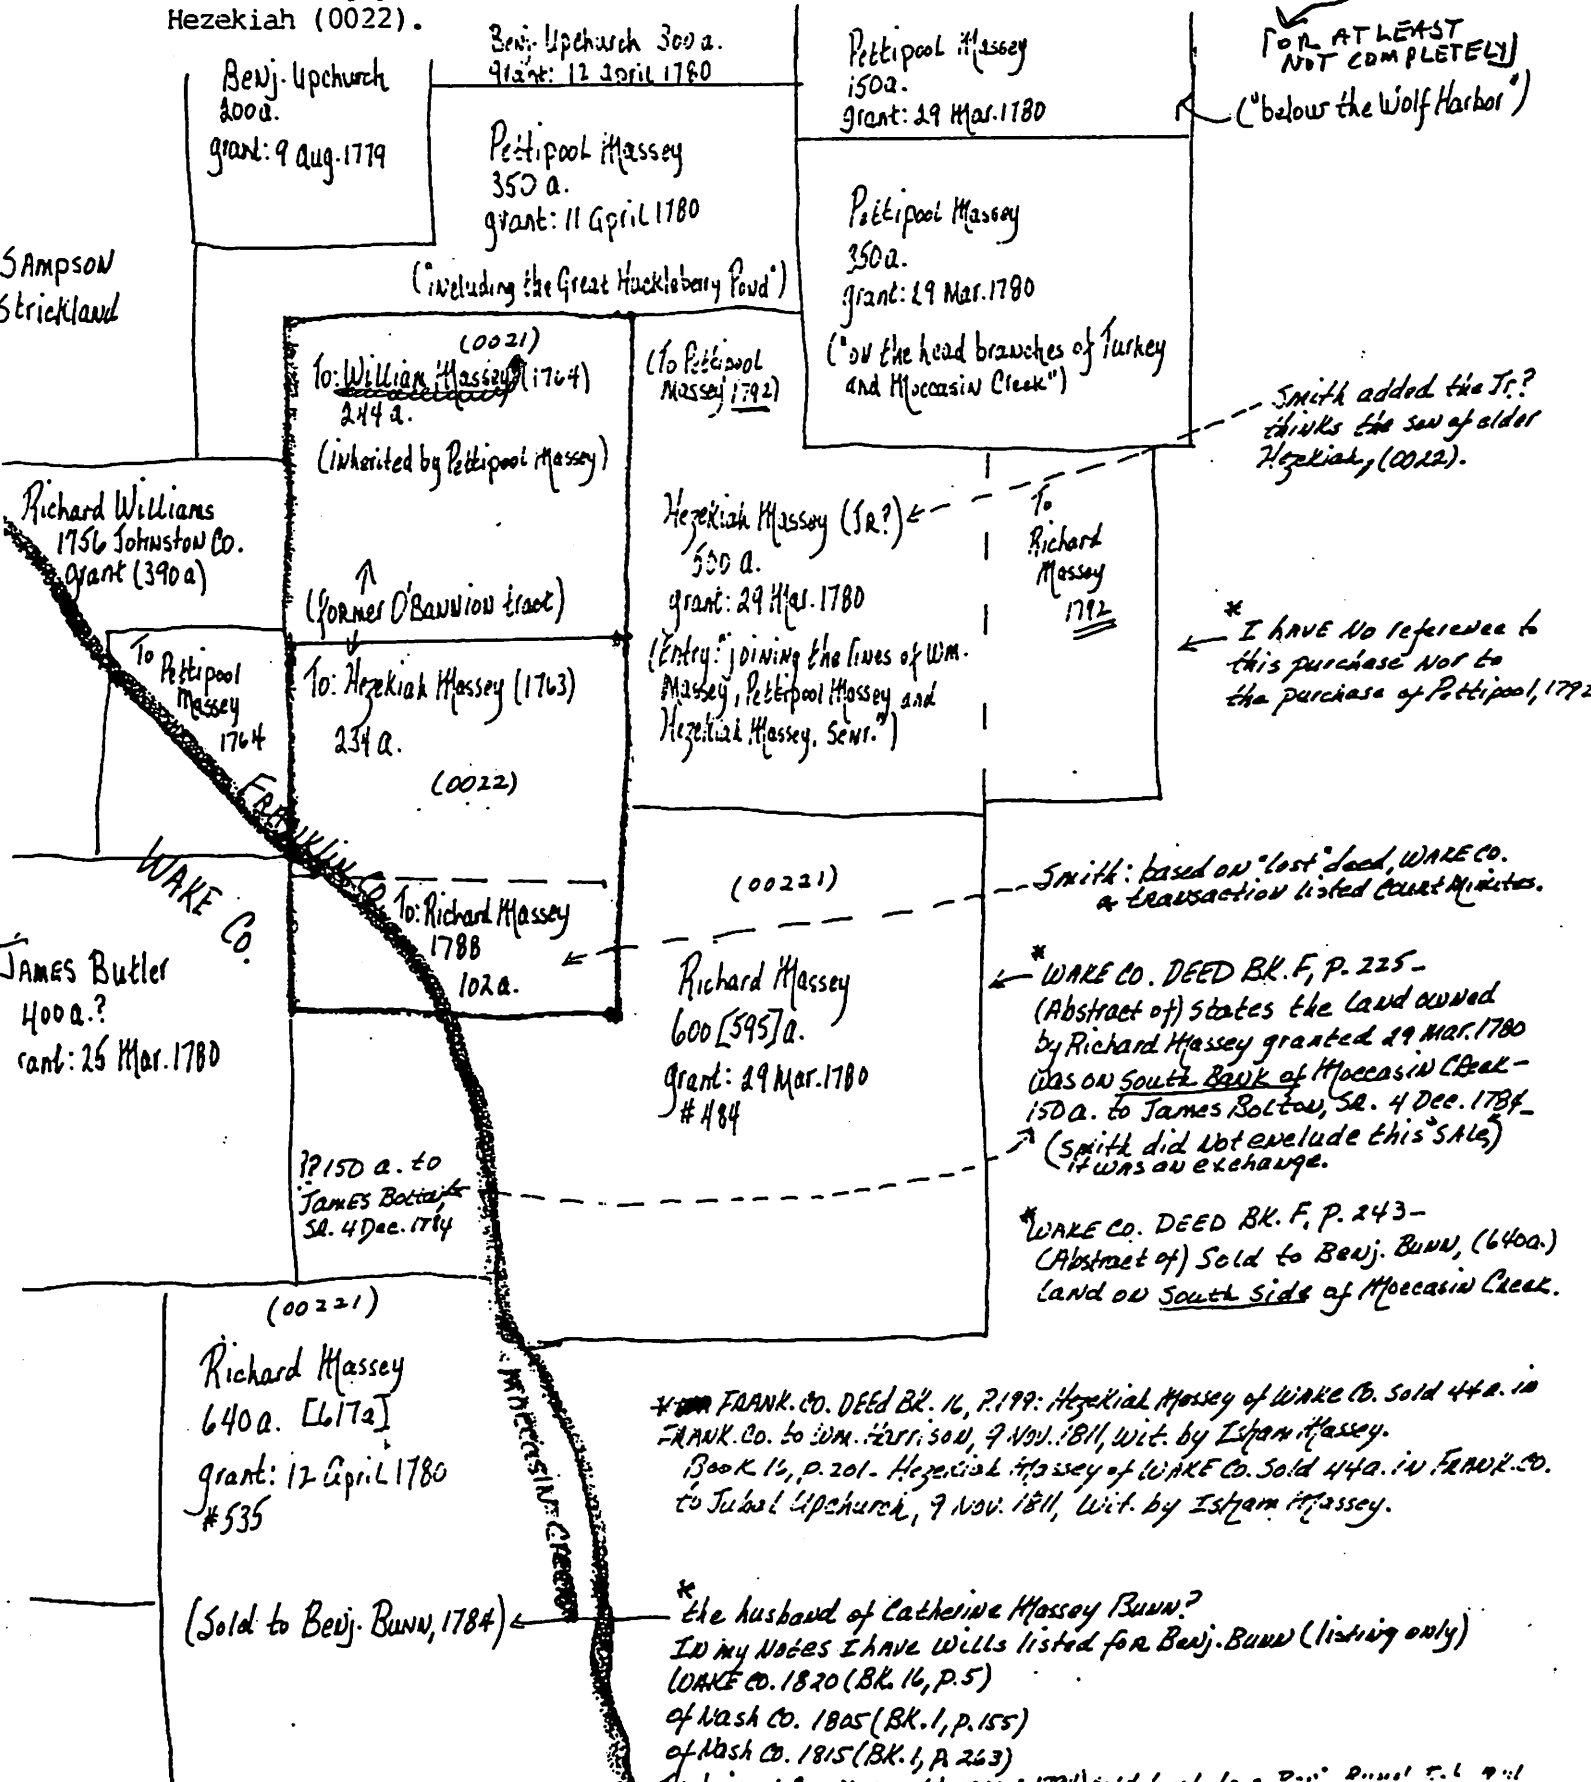 Hezekiah (0022).
Benj. Upchurch
200a.
grant: 9 Aug. 1779
Benj. Upchurch 300a.
grant: 12 April 1780
Pettipool Massey
350 a.
grant: 11 April 1780
("including the Great Huckleberry Pond")
Pettipool Massey
150a.
grant: 29 Mar. 1780
[OR AT LEAST
NOT COMPLETELY]
("below the Wolf Harbor")
Pettipool Massey
350a.
grant: 29 Mar. 1780
("on the head branches of Turkey
and Moccasin Creek")
SAMPSON
Strickland
(0021)
To: William Massey (1764)
244 a.
(inherited by Pettipool Massey)
(former O'Bannion tract)
(To Pettipool
Massey 1792)
Smith added the Jr.?
thinks the son of elder
Hezekiah, (0022).
Richard Williams
1756 Johnston Co.
grant (390a)
Hezekiah Massey (JR?)
500 a.
grant: 29 Mar. 1780
(Entry: "joining the lines of Wm.
Massey, Pettipool Massey and
Hezekiah Massey, Senr.")
To
Richard
Massey
1792
* I HAVE NO reference to
this purchase NOR to
the purchase of Pettipool, 1792
To
Pettipool
Massey
1764
To: Hezekiah Massey (1763)
234 a.
(0022)
FRANKLIN CO.
WAKE CO.
To: Richard Massey
1788
102a.
(00221)
Richard Massey
600 [595] a.
grant: 29 Mar. 1780
#484
Smith: based on "lost" deed, WAKE CO.
a transaction listed Court Minutes.
JAMES Butler
400a.?
rant: 25 Mar. 1780
* WAKE CO. DEED BK. F, P. 225-
(Abstract of) States the land owned
by Richard Massey granted 29 Mar. 1780
was on South Bank of Moccasin Creek-
150 a. to James Bolton, SR. 4 Dec. 1784-
(Smith did not include this "SALE,"
it was an exchange.
??150 a. to
JAMES Bolton,
SR. 4 Dec. 1784
* WAKE CO. DEED BK. F, P. 243-
(Abstract of) Sold to Benj. Bunn, (640a.)
land on South Side of Moccasin Creek.
(00221)
Richard Massey
640a. [617a]
grant: 12 April 1780
#535
(Sold to Benj. Bunn, 1784)
MOCCASIN CREEK
* FRANK. CO. DEED BK. 16, P. 199: Hezekiah Massey of WAKE Co. sold 44a. in
FRANK. CO. to Wm. Harrison, 9 Nov. 1811, wit. by Isham Massey.
Book 16, p. 201- Hezekiah Massey of WAKE Co. sold 44a. in FRANK. CO.
to Jubal Upchurch, 9 Nov. 1811, wit. by Isham Massey.
* the husband of Catherine Massey Bunn?
IN my Notes I have wills listed for Benj. Bunn (listing only)
WAKE CO. 1820 (BK. 16, P. 5)
of Nash Co. 1805 (BK. 1, p. 155)
of Nash Co. 1815 (BK. 1, P. 263)